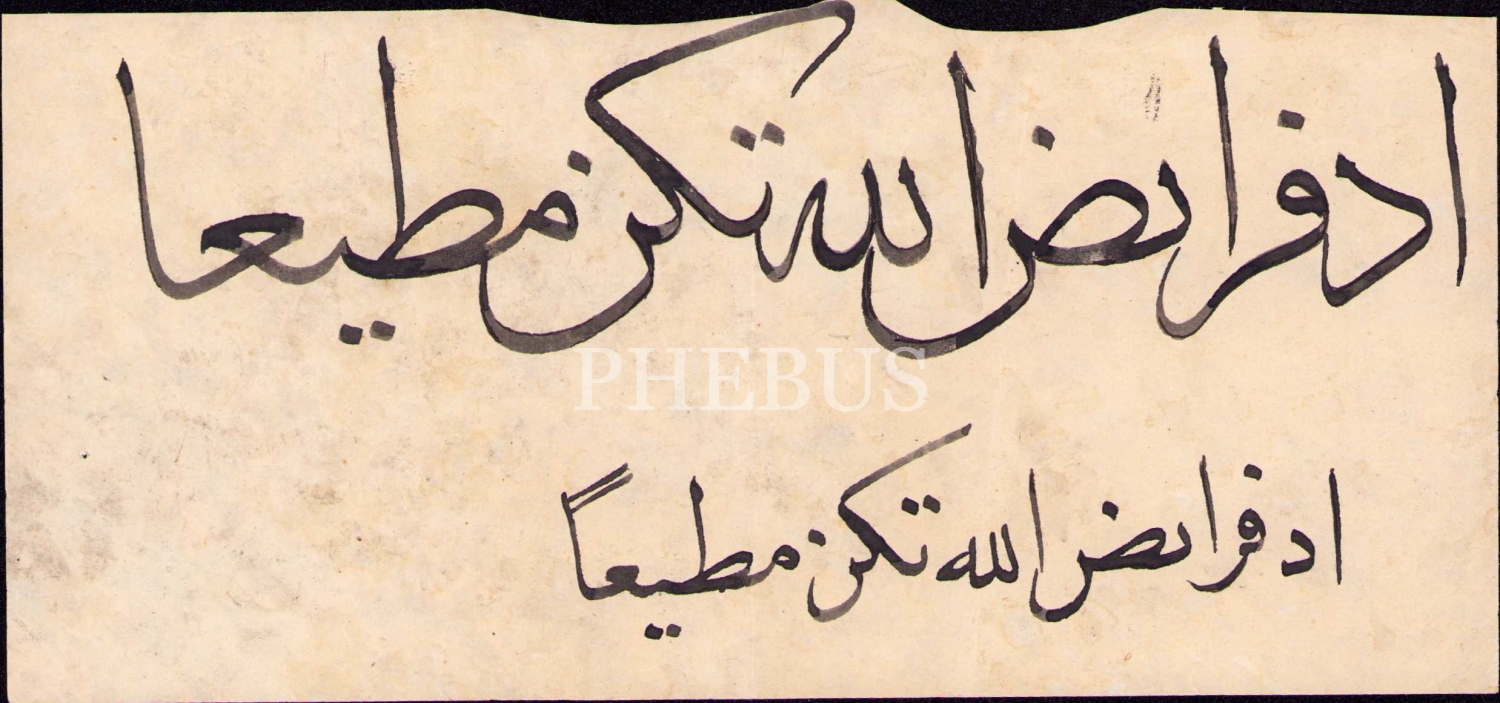 اد فرائض الله تكن مطيعا
PHEBUS
اد فرائض الله تكن مطيعاً